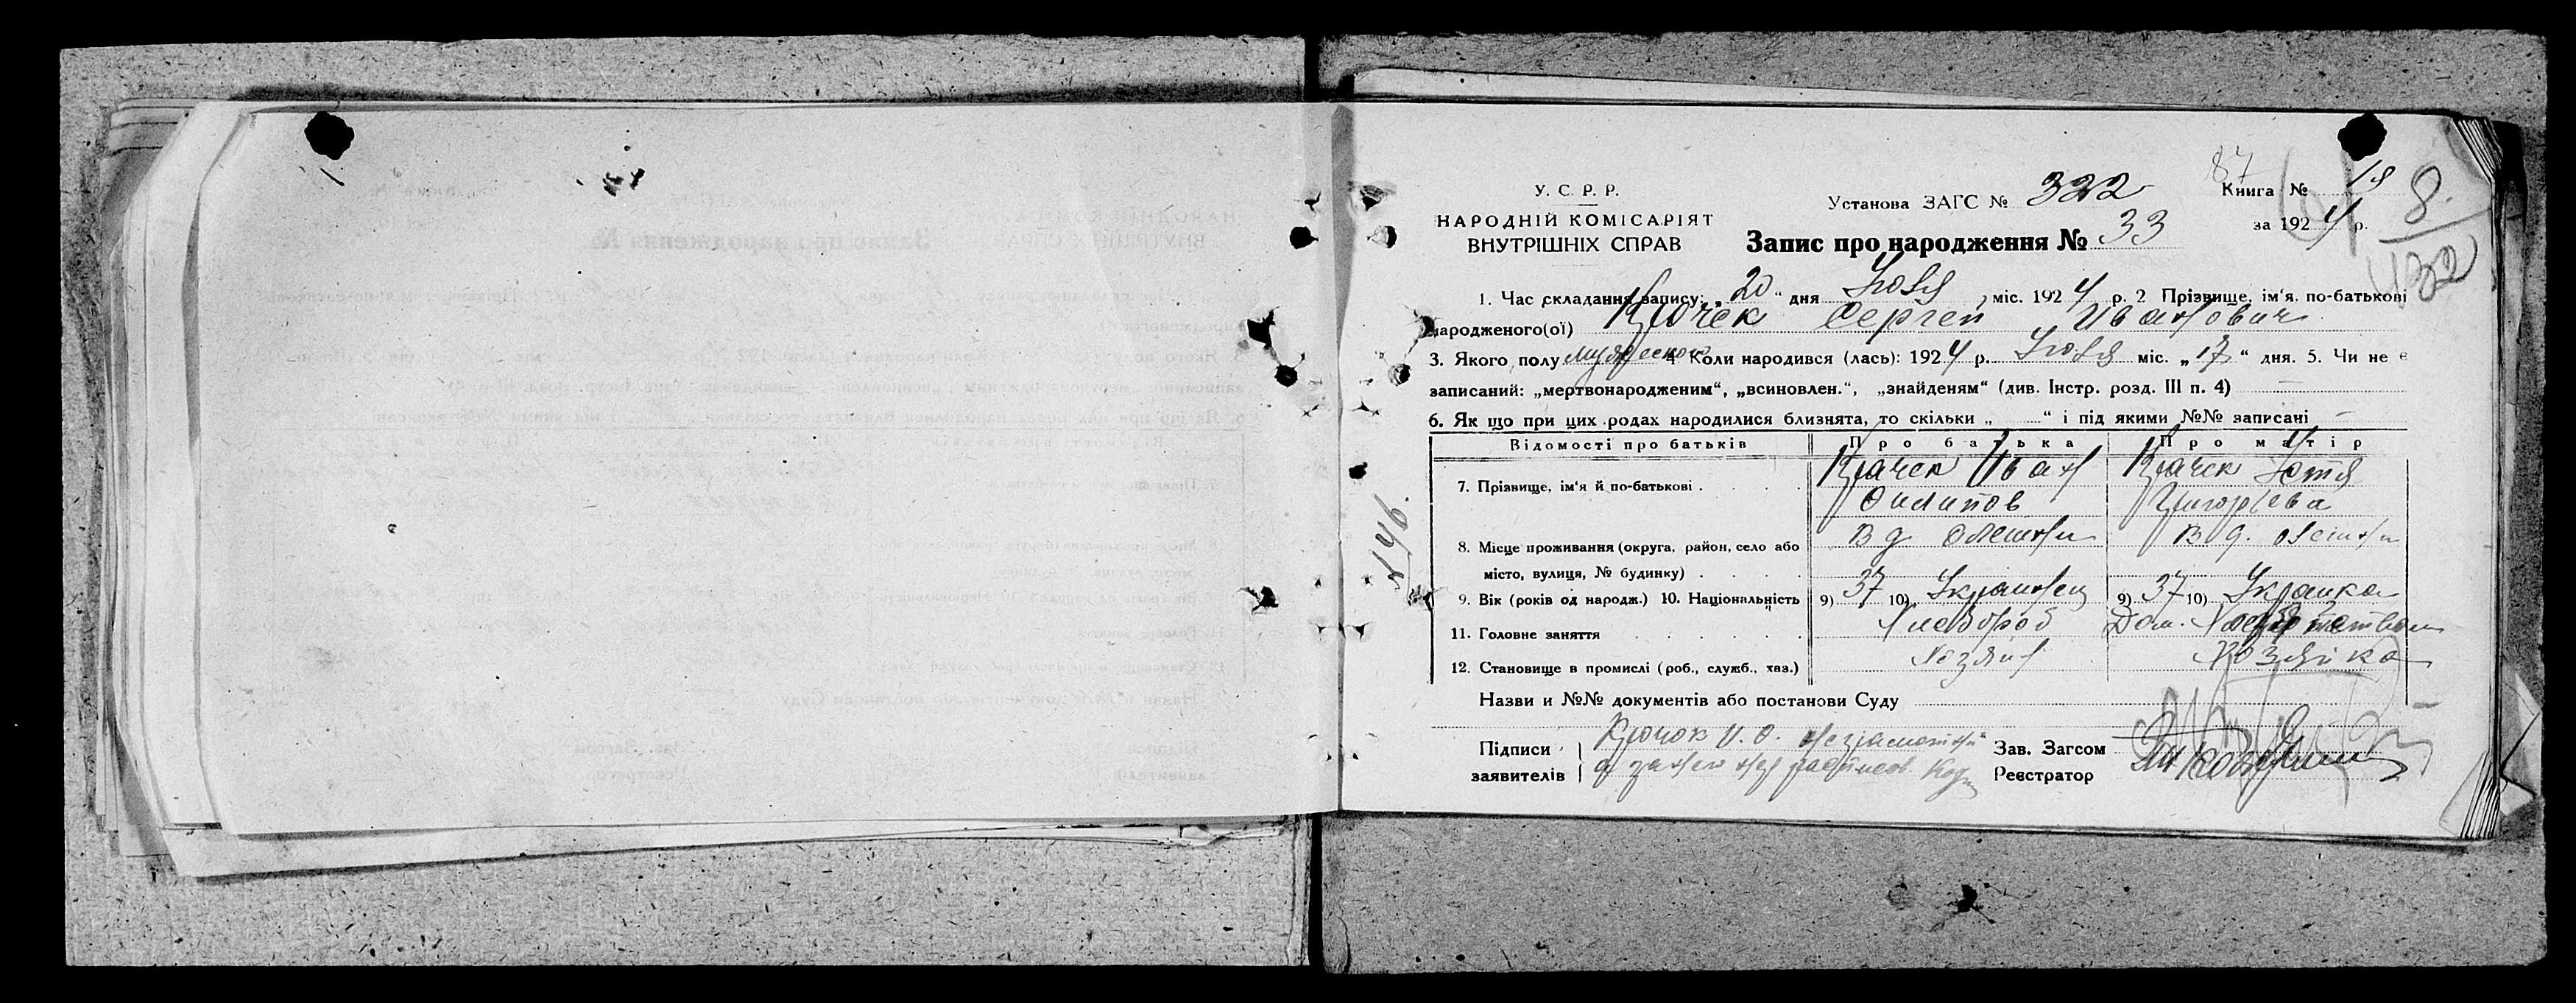 У. С. Р. Р.
НАРОДНІЙ КОМІСАРІЯТ
ВНУТРІШНІХ СПРАВ
Установа ЗАГС № 322
87
Книга № 18
за 1924 р.
8
432
Запис про народження № 33
1. Час складання запису: „20“ дня Июля міс. 1924 р. 2 Прізвище, ім'я, по-батькові
народженого(ої) Крючек Сергей Иванович
3. Якого полу мужеского 4 Коли народився (лась): 1924 р. Июля міс. „17“ дня. 5. Чи не є
записаний: „мертвонародженим“, „всиновлен.“, „знайденям“ (див. Інстр. розд. III п. 4) —
6. Як що при цих родах народилися близнята, то скільки „ “ і під якими №№ записані —
Відомості про батьків Про батька Про матір
7. Прізвище, ім'я й по-батькові . Крючек Иван Крючек
Филипов Григорьева
8. Місце проживання (округа, район, село або В д. Олешни В д. Олешни
місто, вулиця, № будинку) .
9. Вік (років од народж.) 10. Національність 9) 37 10) Украинец 9) 37 10) Украинка
11. Головне заняття Хлебороб Дом.
12. Становище в промислі (роб., служб., хаз.) Хозяин Хозяйка
Назви и №№ документів або постанови Суду —
Підписи Крючок И. Ф. неграмотный
заявителів а за него
Зав. Загсом
Реєстратор
146.